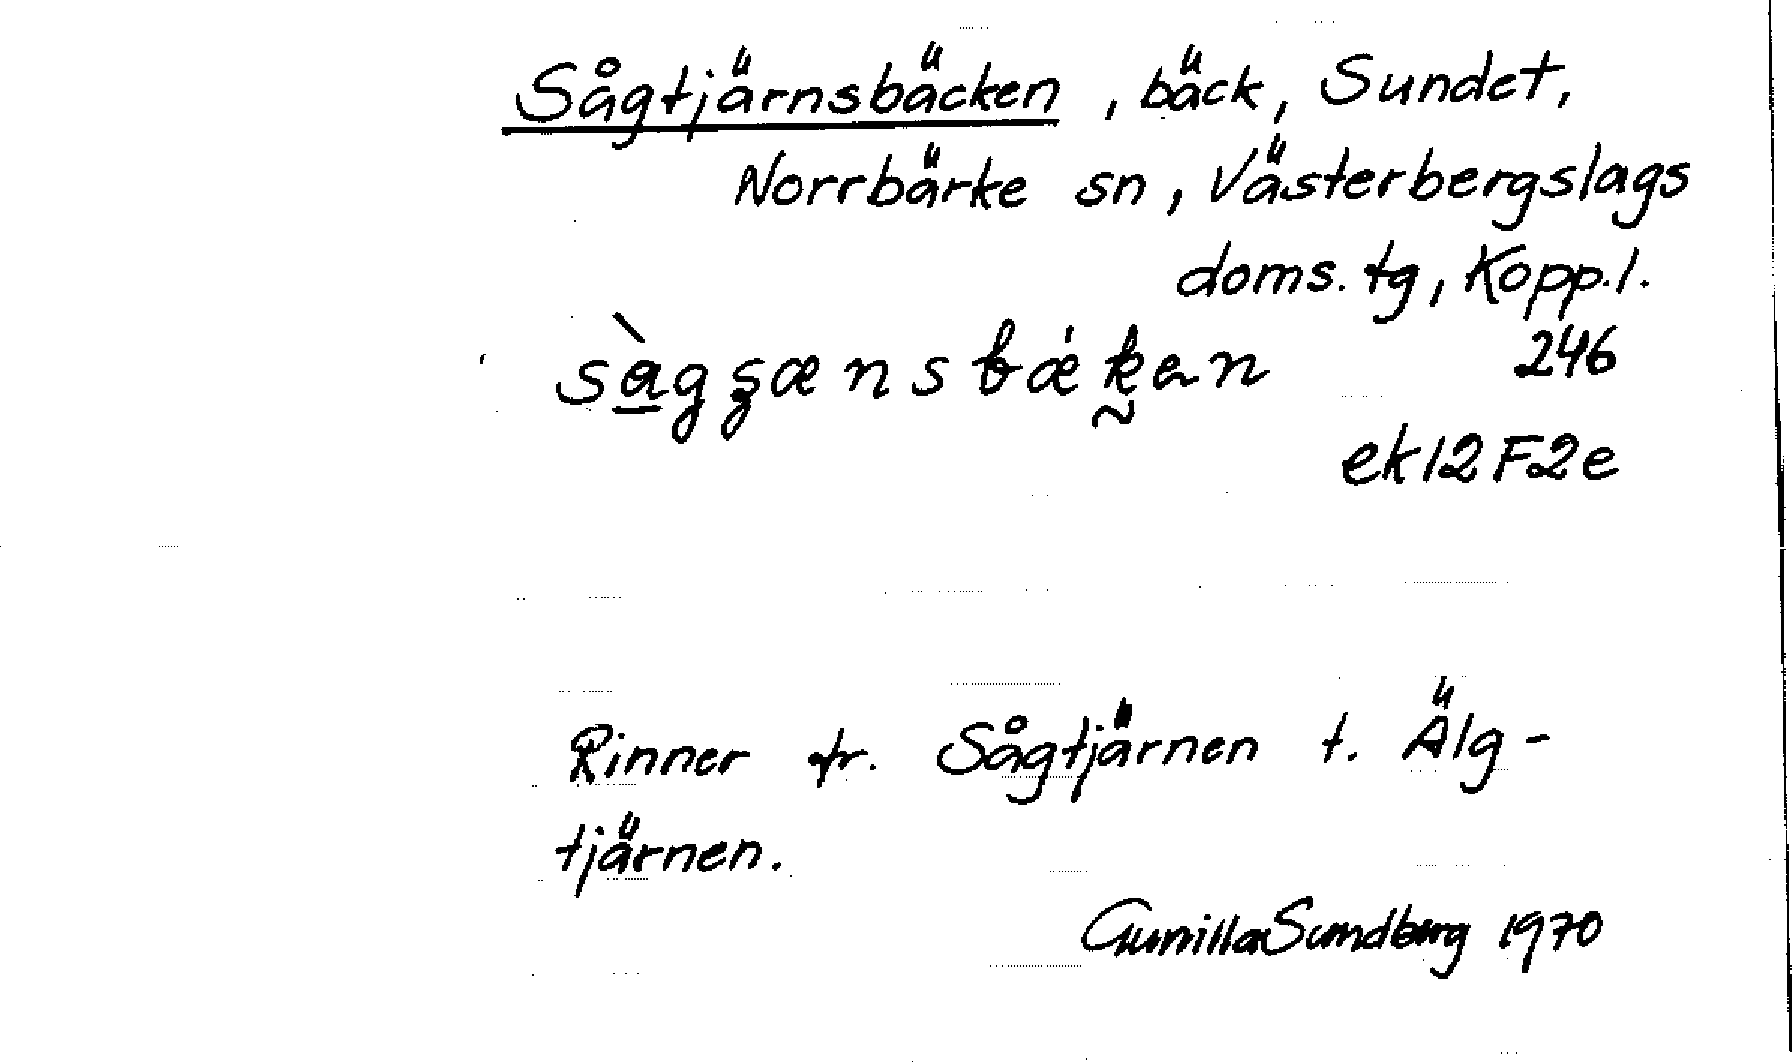 Sågtjärnsbäcken, bäck, Sundet,
Norrbärke sn, Västerbergslags
doms. tg, Kopp. l.
246
ek 12 F 2 e
Rinner fr. Sågtjärnen t. Älg-
tjärnen.
Gunilla Sundberg 1970